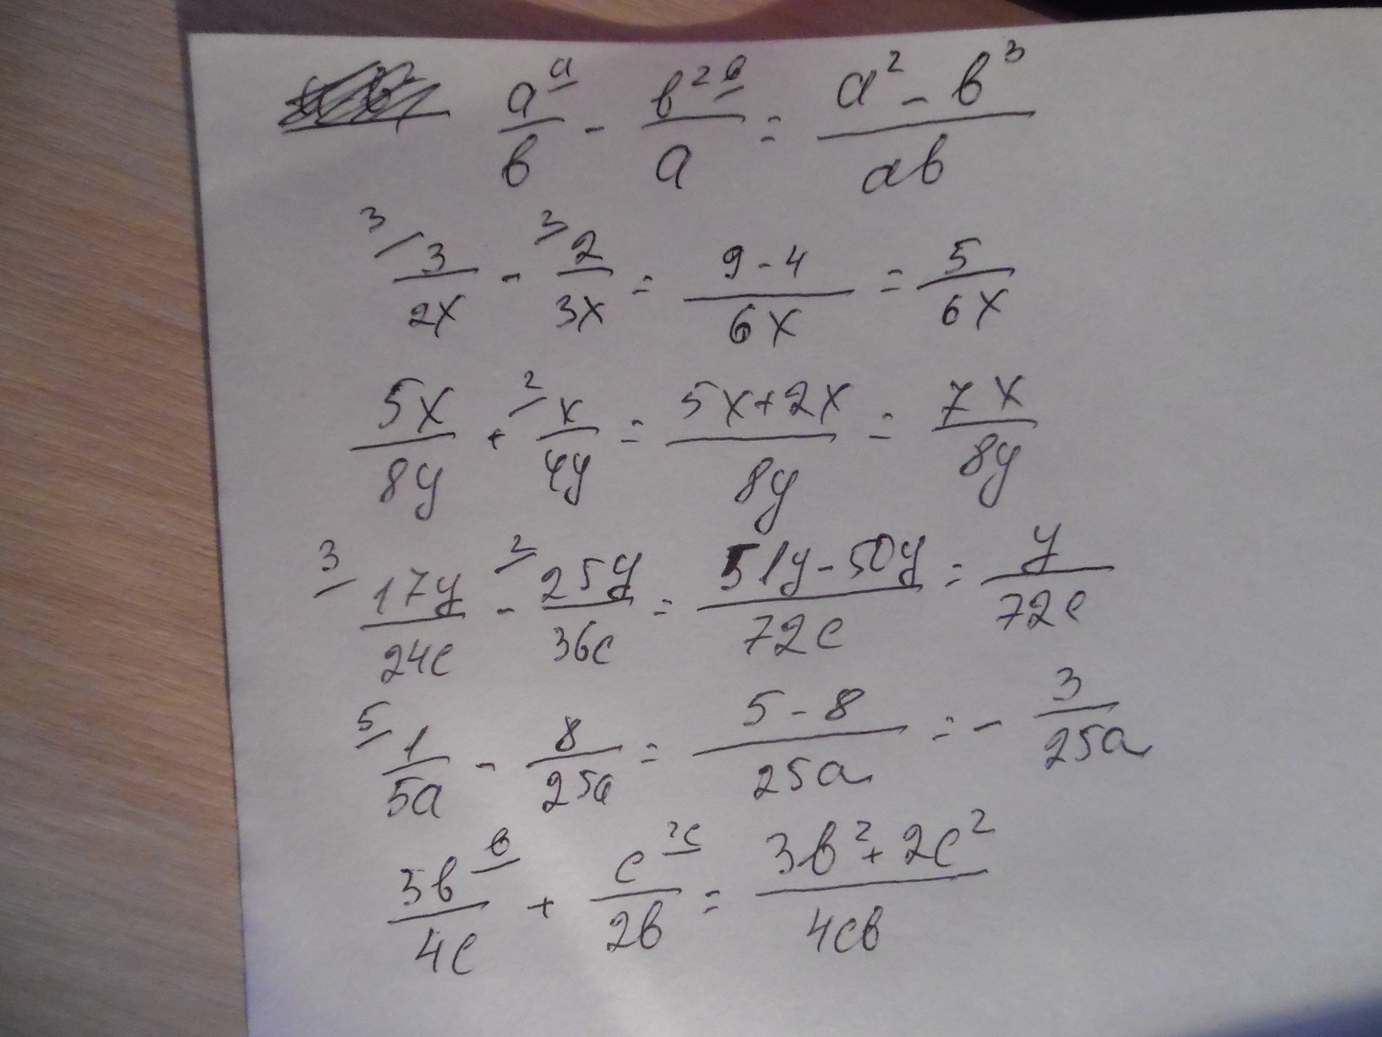 a^a/b - b^2^b/a = (a^2 - b^3)/ab
3/ 3/2x - 2/ 2/3x = (9-4)/6x = 5/6x
5x/8y + 2/ x/4y = (5x+2x)/8y = 7x/8y
3/ 17y/24c - 2/ 25y/36c = (51y-50y)/72c = y/72c
5/ 1/5a - 8/25a = (5-8)/25a = - 3/25a
3b^b/4c + c^2c/2b = (3b^2+2c^2)/4cb